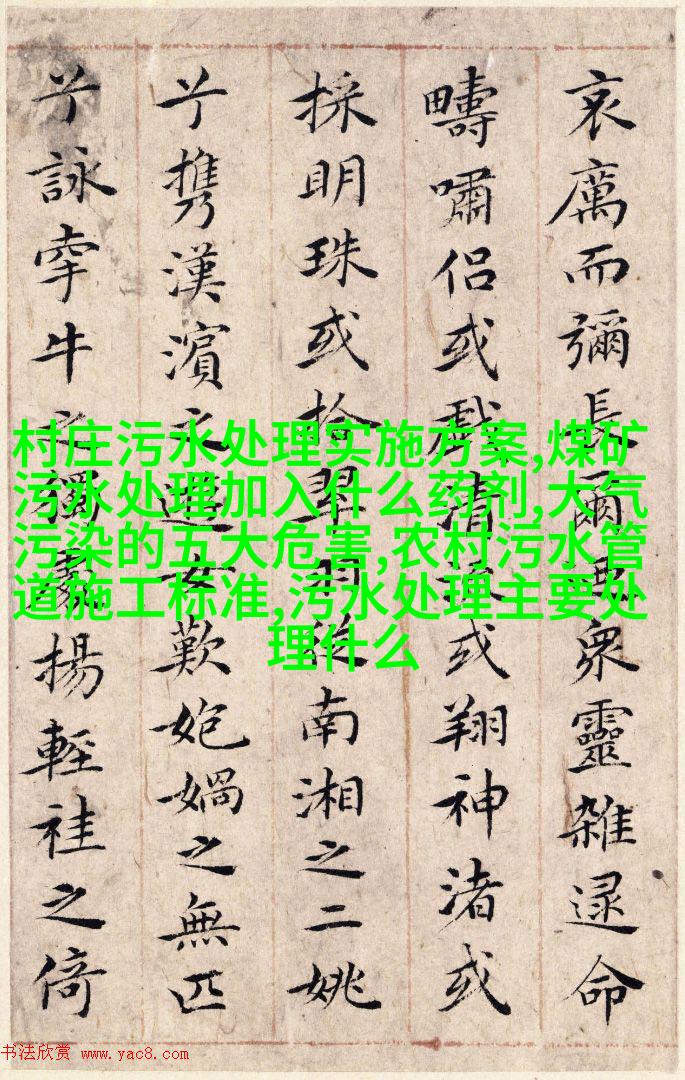 哀厲而彌長爾衆靈雜遝命
疇嘯侶或戲清流或翔神渚或
採明珠或拾翠羽從南湘之二姚
兮攜漢濱之遊女歎媧之無匹
兮詠牽牛之獨處揚輕袿之倚
村庄污水处理实施方案,煤矿
污水处理加入什么药剂,大气
污染的五大危害,农村污水管
道施工标准,污水处理主要处
理什么
书法欣赏 www.yac8.com